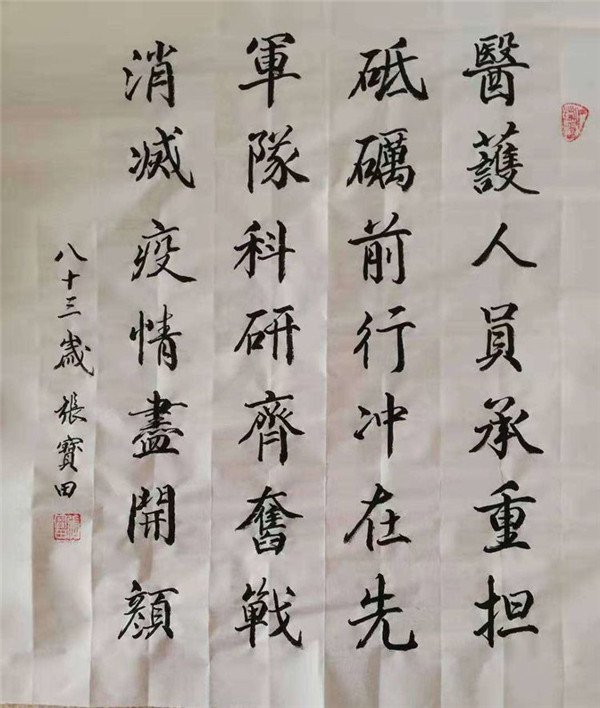 醫護人員承重担
砥礪前行冲在先
軍隊科研齊奮戰
消滅疫情盡開顏
八十三歲 張寶田